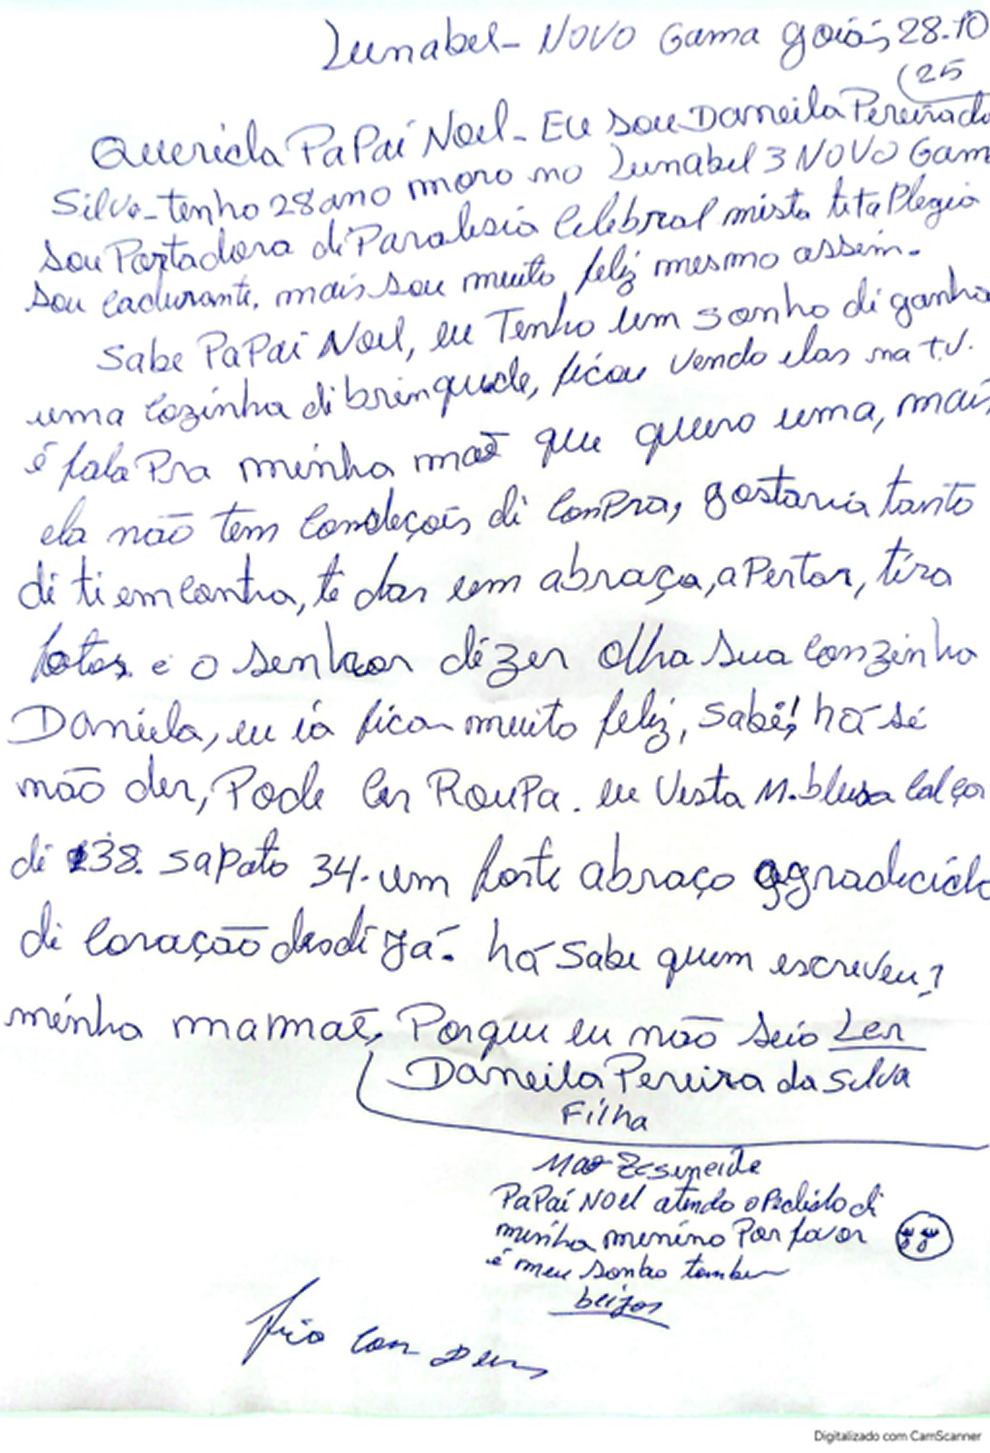 Lunabel - NOVO Gama goiás, 28-10
(25
Querida PaPai Noel - Eu sou Daneila Pereira da
Silva - tenho 28 ano moro no Lunabel 3 NOVO Gam
Sou Portadora di Paralisia Celebral mista titaPlegia
Sou cadurante, mais sou muito feliz mesmo assim.
Sabe PaPai Noel, eu Tenho um sonho di ganha
uma Cozinha di brinquede, ficou vendo elas na t.v.
é fala Pra minha maẽ que quero uma, mais
ela não tem Condeçois di ConPra, gostaria tanto
di ti emContra, te dar um abraça, aPertar, tira
fotos e o senhor dizer olha sua Conzinha
Daniela, eu ia ficar muito feliz, sabe! há si
não der, Pode ser RouPa. eu Visto M. blusa Calça
di 38. sapato 34. um forte abraço aggradicido
di Coração desdi Já. há sabe quem escreveu?
minha mamaẽ, Porque eu não seio Ler
Daneila Pereira da Silva
Filha
Mae
PaPai Noel atendo o Pedido di
minha menina Por favor
é meu sonho tambem
beijos
fico Com Deus
Digitalizado com CamScanner